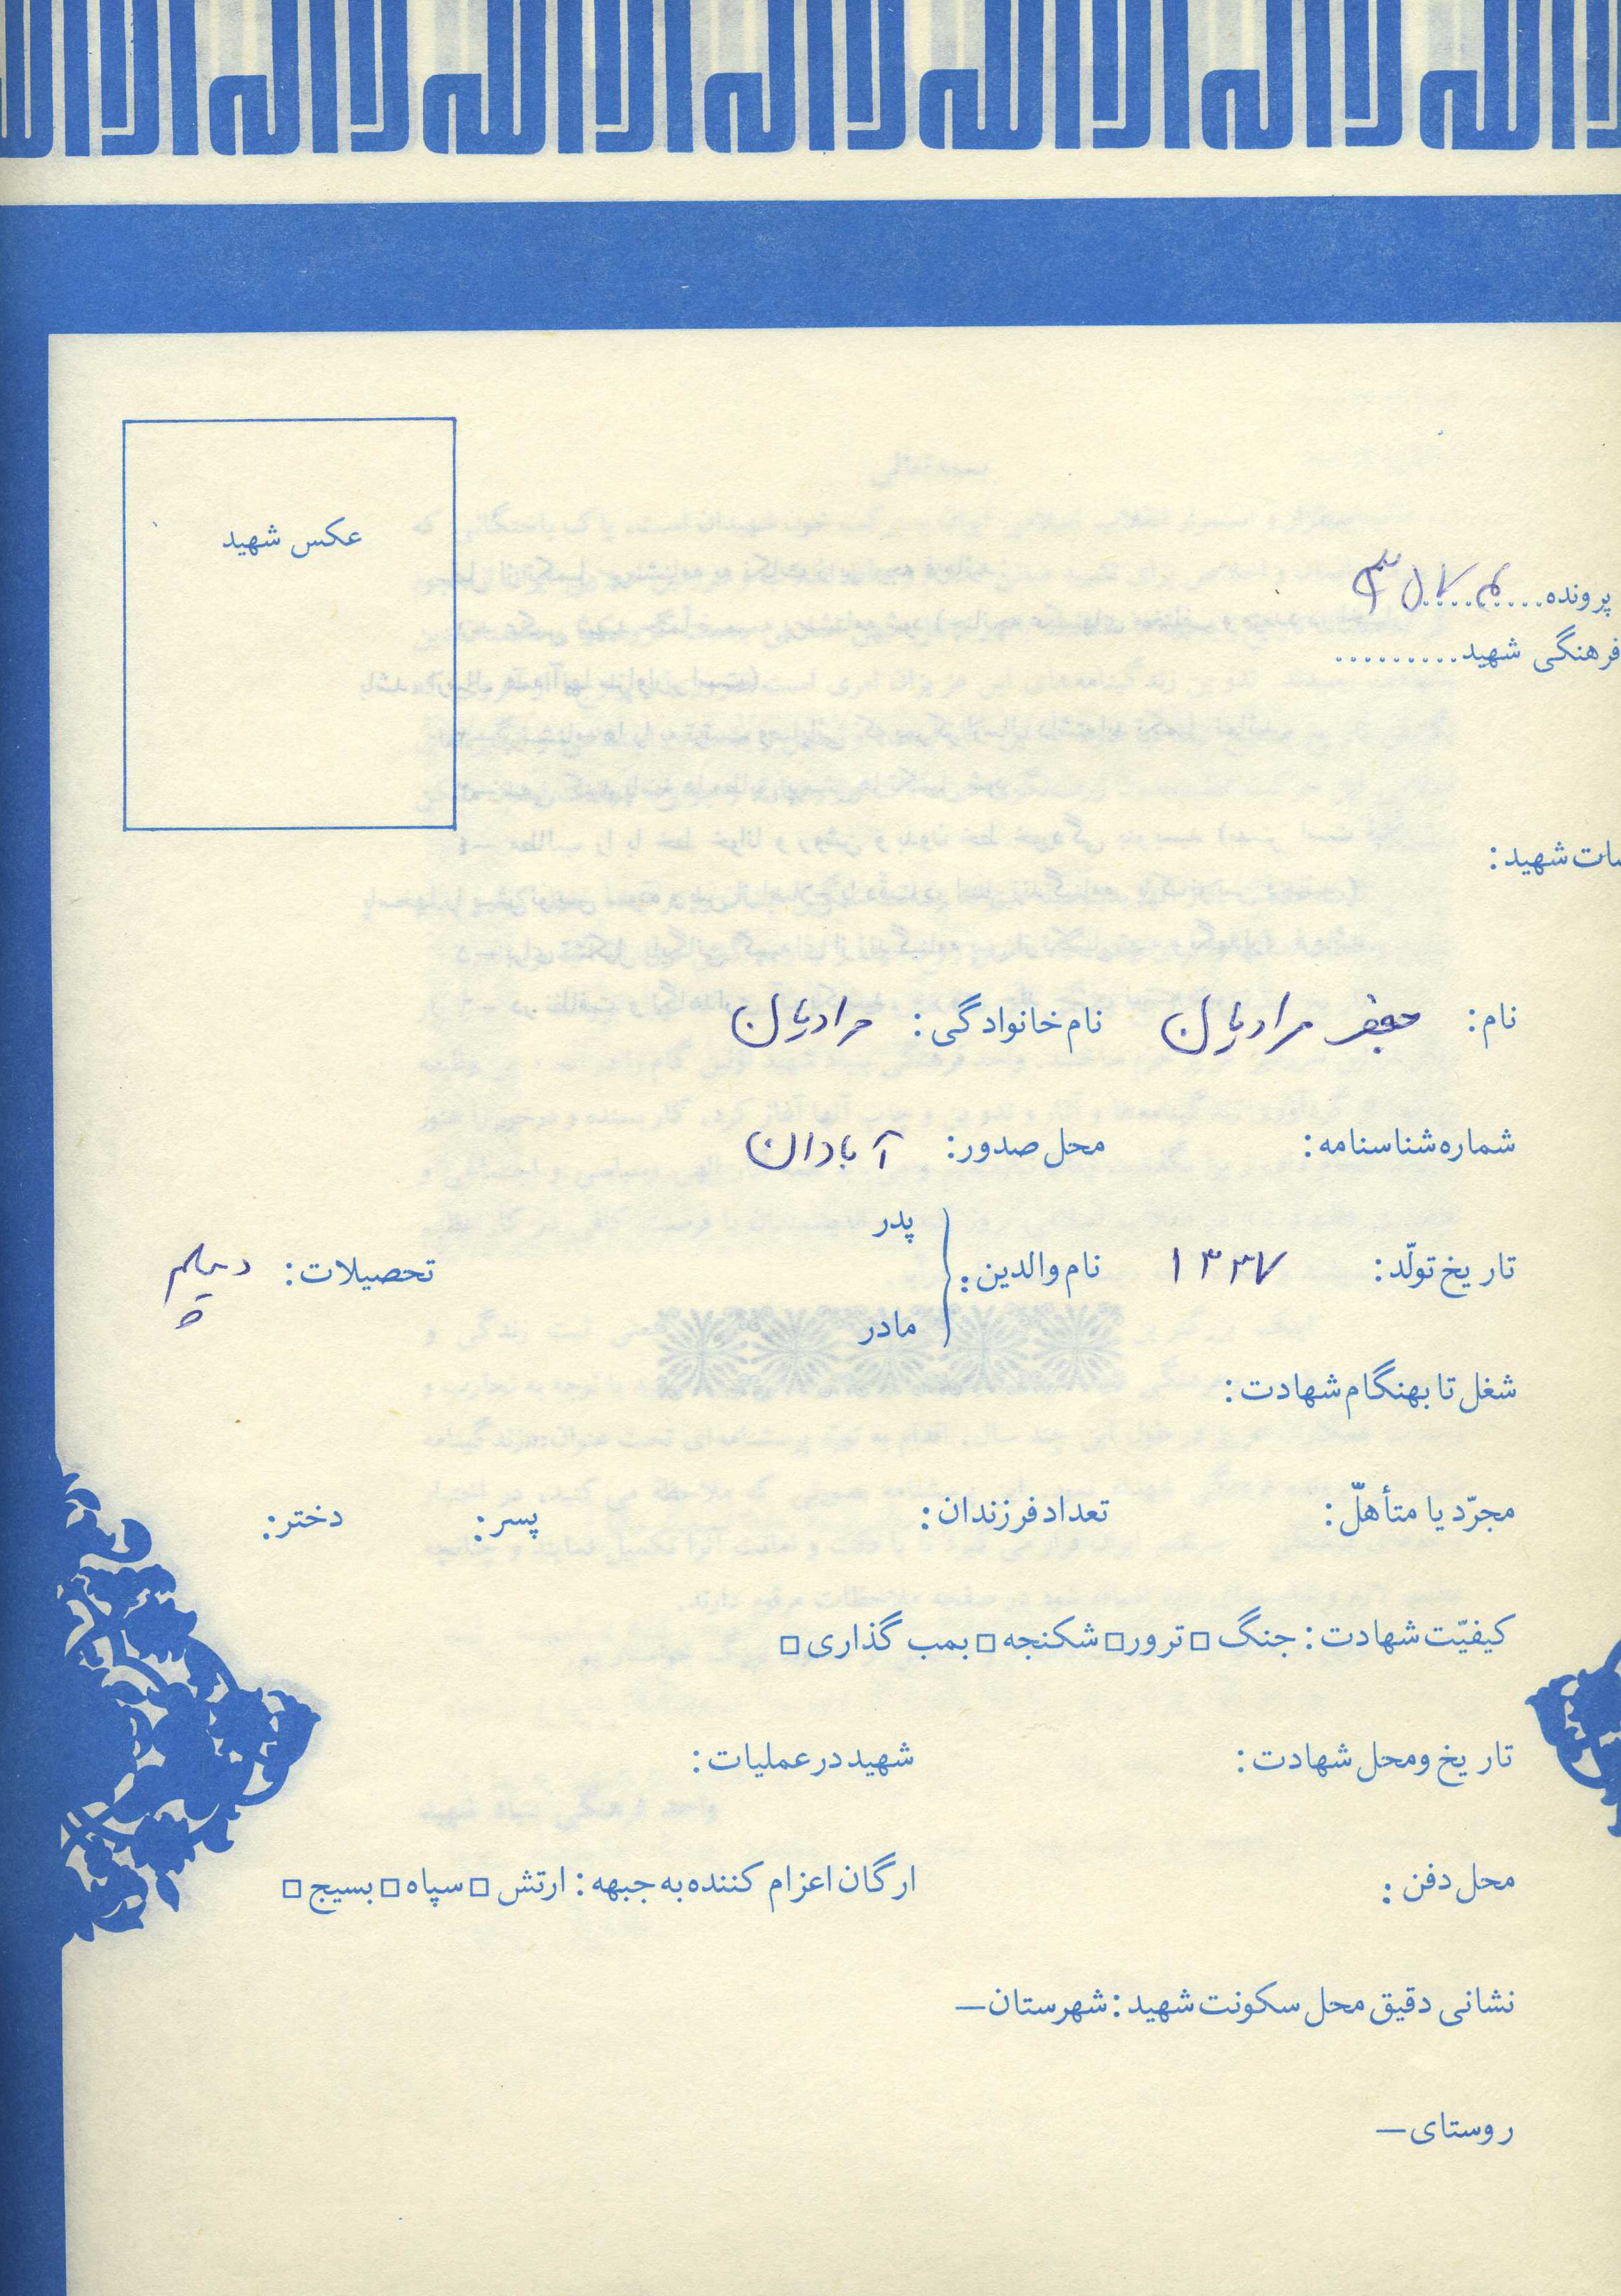 لا اله الا الله لا اله الا الله لا اله الا الله
عکس شهید
پرونده..........
فرهنگی شهید..........
شهید:
نام: جعفر مرادیان نام خانوادگی: مرادیان
شماره شناسنامه: محل صدور: آبادان
پدر
تاریخ تولّد: ۱۳۳۷ نام والدین: تحصیلات: دیپلم
مادر
شغل تا بهنگام شهادت:
مجرّد یا متأهلّ: تعداد فرزندان: پسر: دختر:
کیفیّت شهادت: جنگ □ ترور □ شکنجه □ بمب گذاری □
تاریخ و محل شهادت: شهید در عملیات:
محل دفن: ارگان اعزام کننده به جبهه: ارتش □ سپاه □ بسیج □
نشانی دقیق محل سکونت شهید: شهرستان—
روستای—